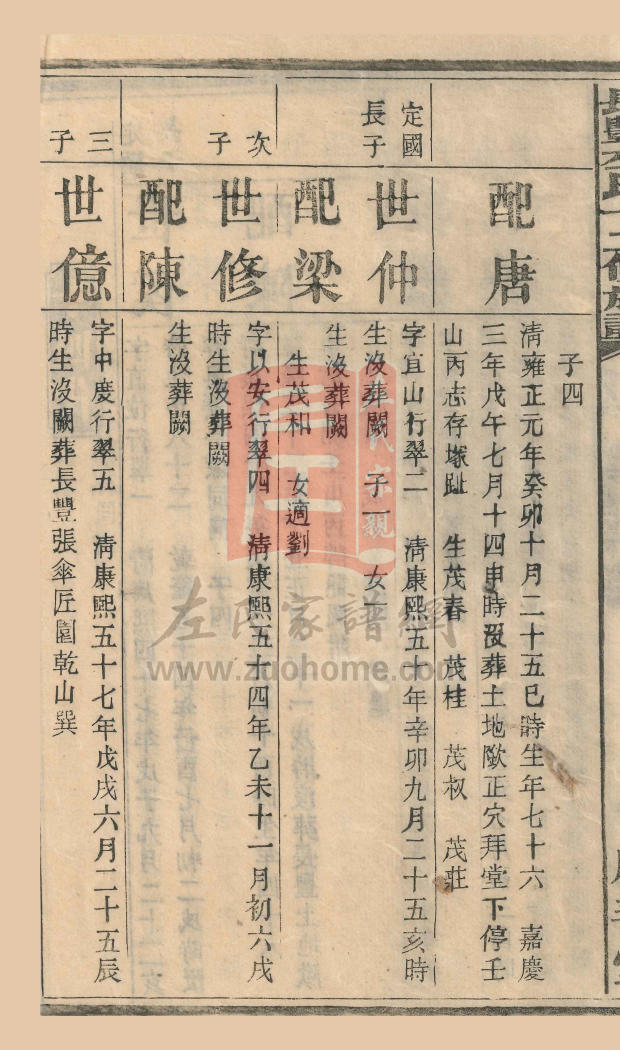 子四
配唐
清雍正元年癸卯十月二十五巳時生年七十六　嘉慶
三年戊午七月十四申時没葬土地墩正穴拜堂下停壬
山丙志存塚趾　生茂春　茂桂　茂权　茂莊
定國
長子
世仲
字宜山行翠二　清康熙五十年辛卯九月二十五亥時
生沒葬闕　子一　女一
配梁
生沒葬闕
生茂和　女適劉
次
子
世修
字以安行翠四　清康熙五十四年乙未十一月初六戌
時生沒葬闕
配陳
生沒葬闕
三
子
世億
字中慶行翠五　清康熙五十七年戊戌六月二十五辰
時生沒闕葬長豐張傘匠園乾山巽
左氏家譜網
www.zuohome.com